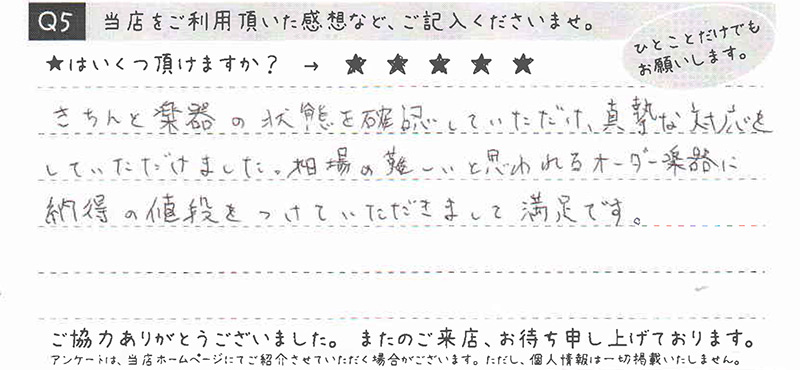 Q5 当店をご利用頂いた感想など、ご記入くださいませ。
ひとことだけでも
お願いします。
★はいくつ頂けますか? → ★ ★ ★ ★ ★
きちんと楽器の状態を確認していただけ、真摯な対応を
していただけました。相場の難しいと思われるオーダー楽器に
納得の値段をつけていただきまして満足です。
ご協力ありがとうございました。 またのご来店、お待ち申し上げております。
アンケートは、当店ホームページにてご紹介させていただく場合がございます。ただし、個人情報は一切掲載いたしません。